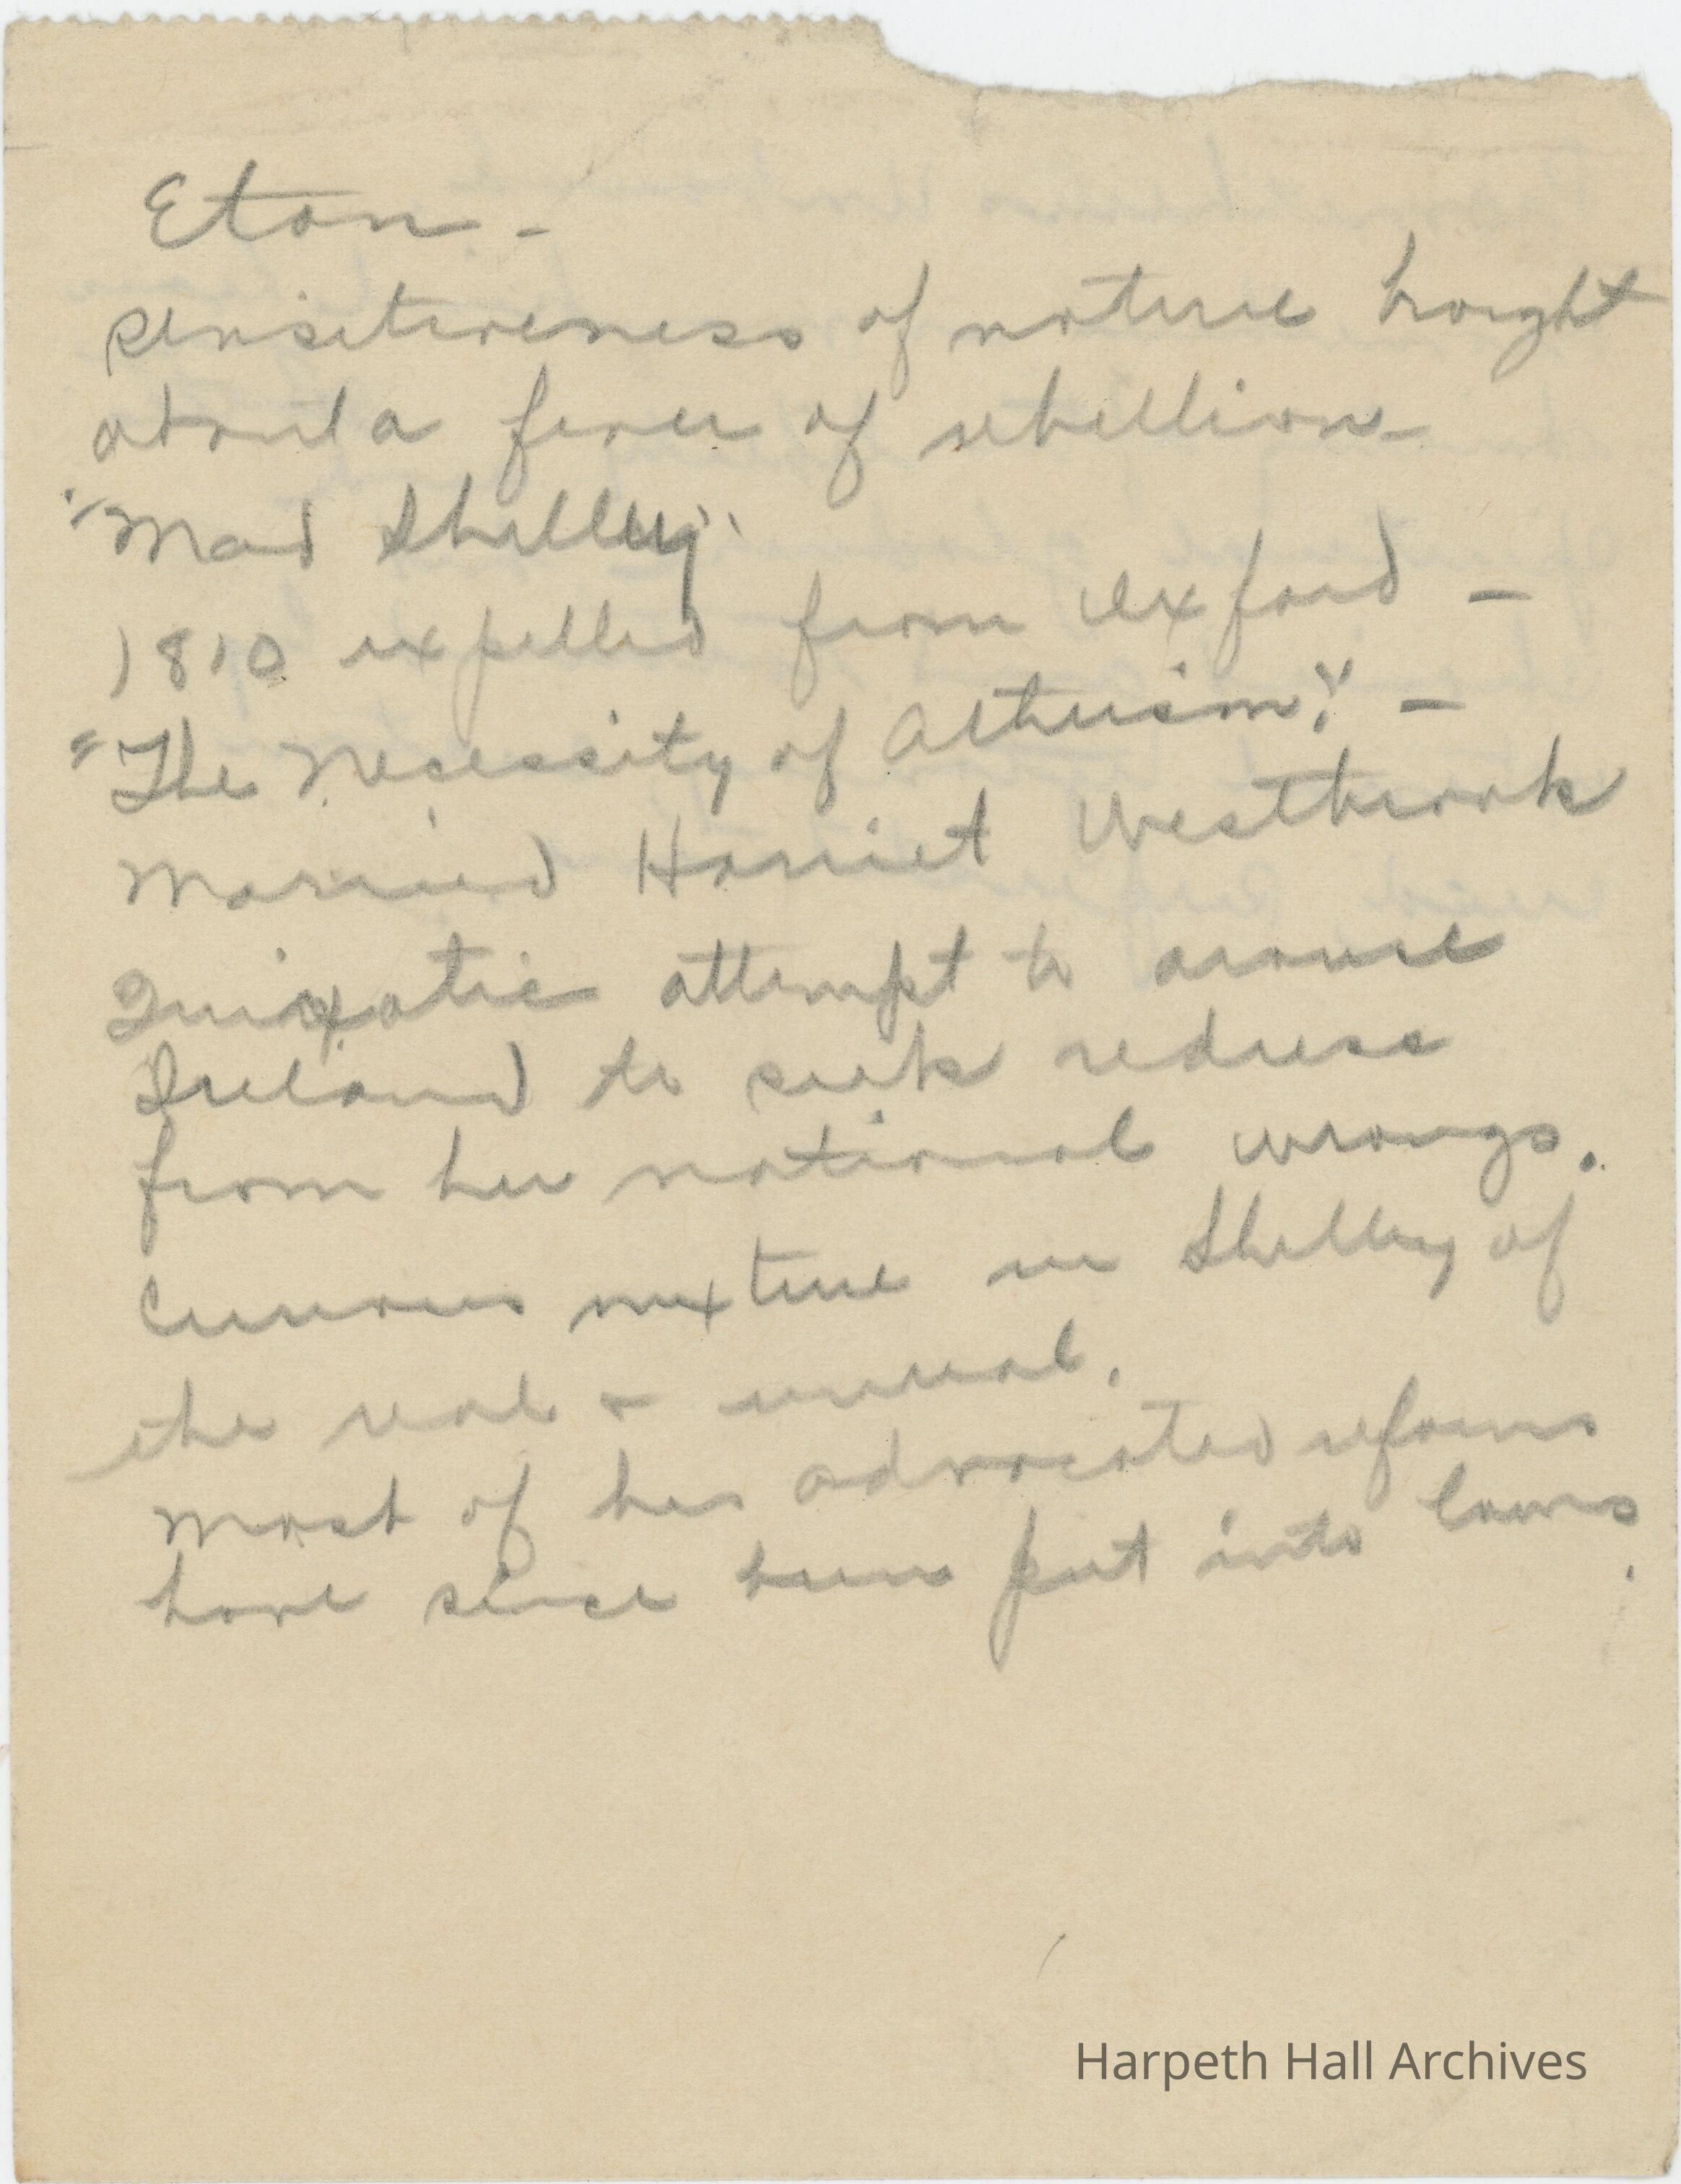 Eton -
sensitiveness of nature brought
about a fever of rebellion -
"Mad Shelley"
1810 expelled from Oxford -
"The Necessity of Atheism". -
Married Harriet Westbrook
Quixotic attempt to arouse
Ireland to seek redress
from her national wrongs.
Curious mixture in Shelley of
the real & unreal.
Most of his advocated reforms
have since been put into laws.
Harpeth Hall Archives